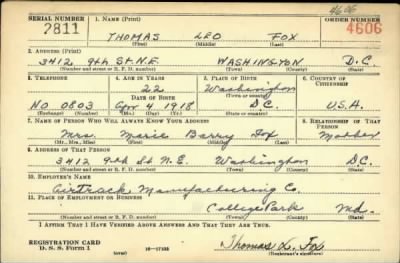 4606
SERIAL NUMBER 1. NAME (Print) ORDER NUMBER
2811 THOMAS LEO FOX 4606
(First) (Middle) (Last)
2. ADDRESS (Print)
3412 9th St. N.E. WASHINGTON D.C.
(Number and street or R. F. D. number) (Town) (County) (State)
3. TELEPHONE 4. AGE IN YEARS 5. PLACE OF BIRTH 6. COUNTRY OF CITIZENSHIP
22 Washington
DATE OF BIRTH (Town or county)
NO 0803 Apr 4 1918 D.C. U.S.A.
(Exchange) (Number) (Mo.) (Day) (Yr.) (State or country)
7. NAME OF PERSON WHO WILL ALWAYS KNOW YOUR ADDRESS 8. RELATIONSHIP OF THAT PERSON
Mrs. Marie Barry Fox Mother
(Mr., Mrs., Miss) (First) (Middle) (Last)
9. ADDRESS OF THAT PERSON
3412 9th St N.E. Washington D.C.
(Number and street or R. F. D. number) (Town) (County) (State)
10. EMPLOYER'S NAME
Airtrack Manufacturing Co.
11. PLACE OF EMPLOYMENT OR BUSINESS
College Park Md.
(Number and street or R. F. D. number) (Town) (County) (State)
I AFFIRM THAT I HAVE VERIFIED ABOVE ANSWERS AND THAT THEY ARE TRUE.
REGISTRATION CARD
D. S. S. Form 1 (over) 16—17105 Thomas L. Fox
(Registrant's signature)